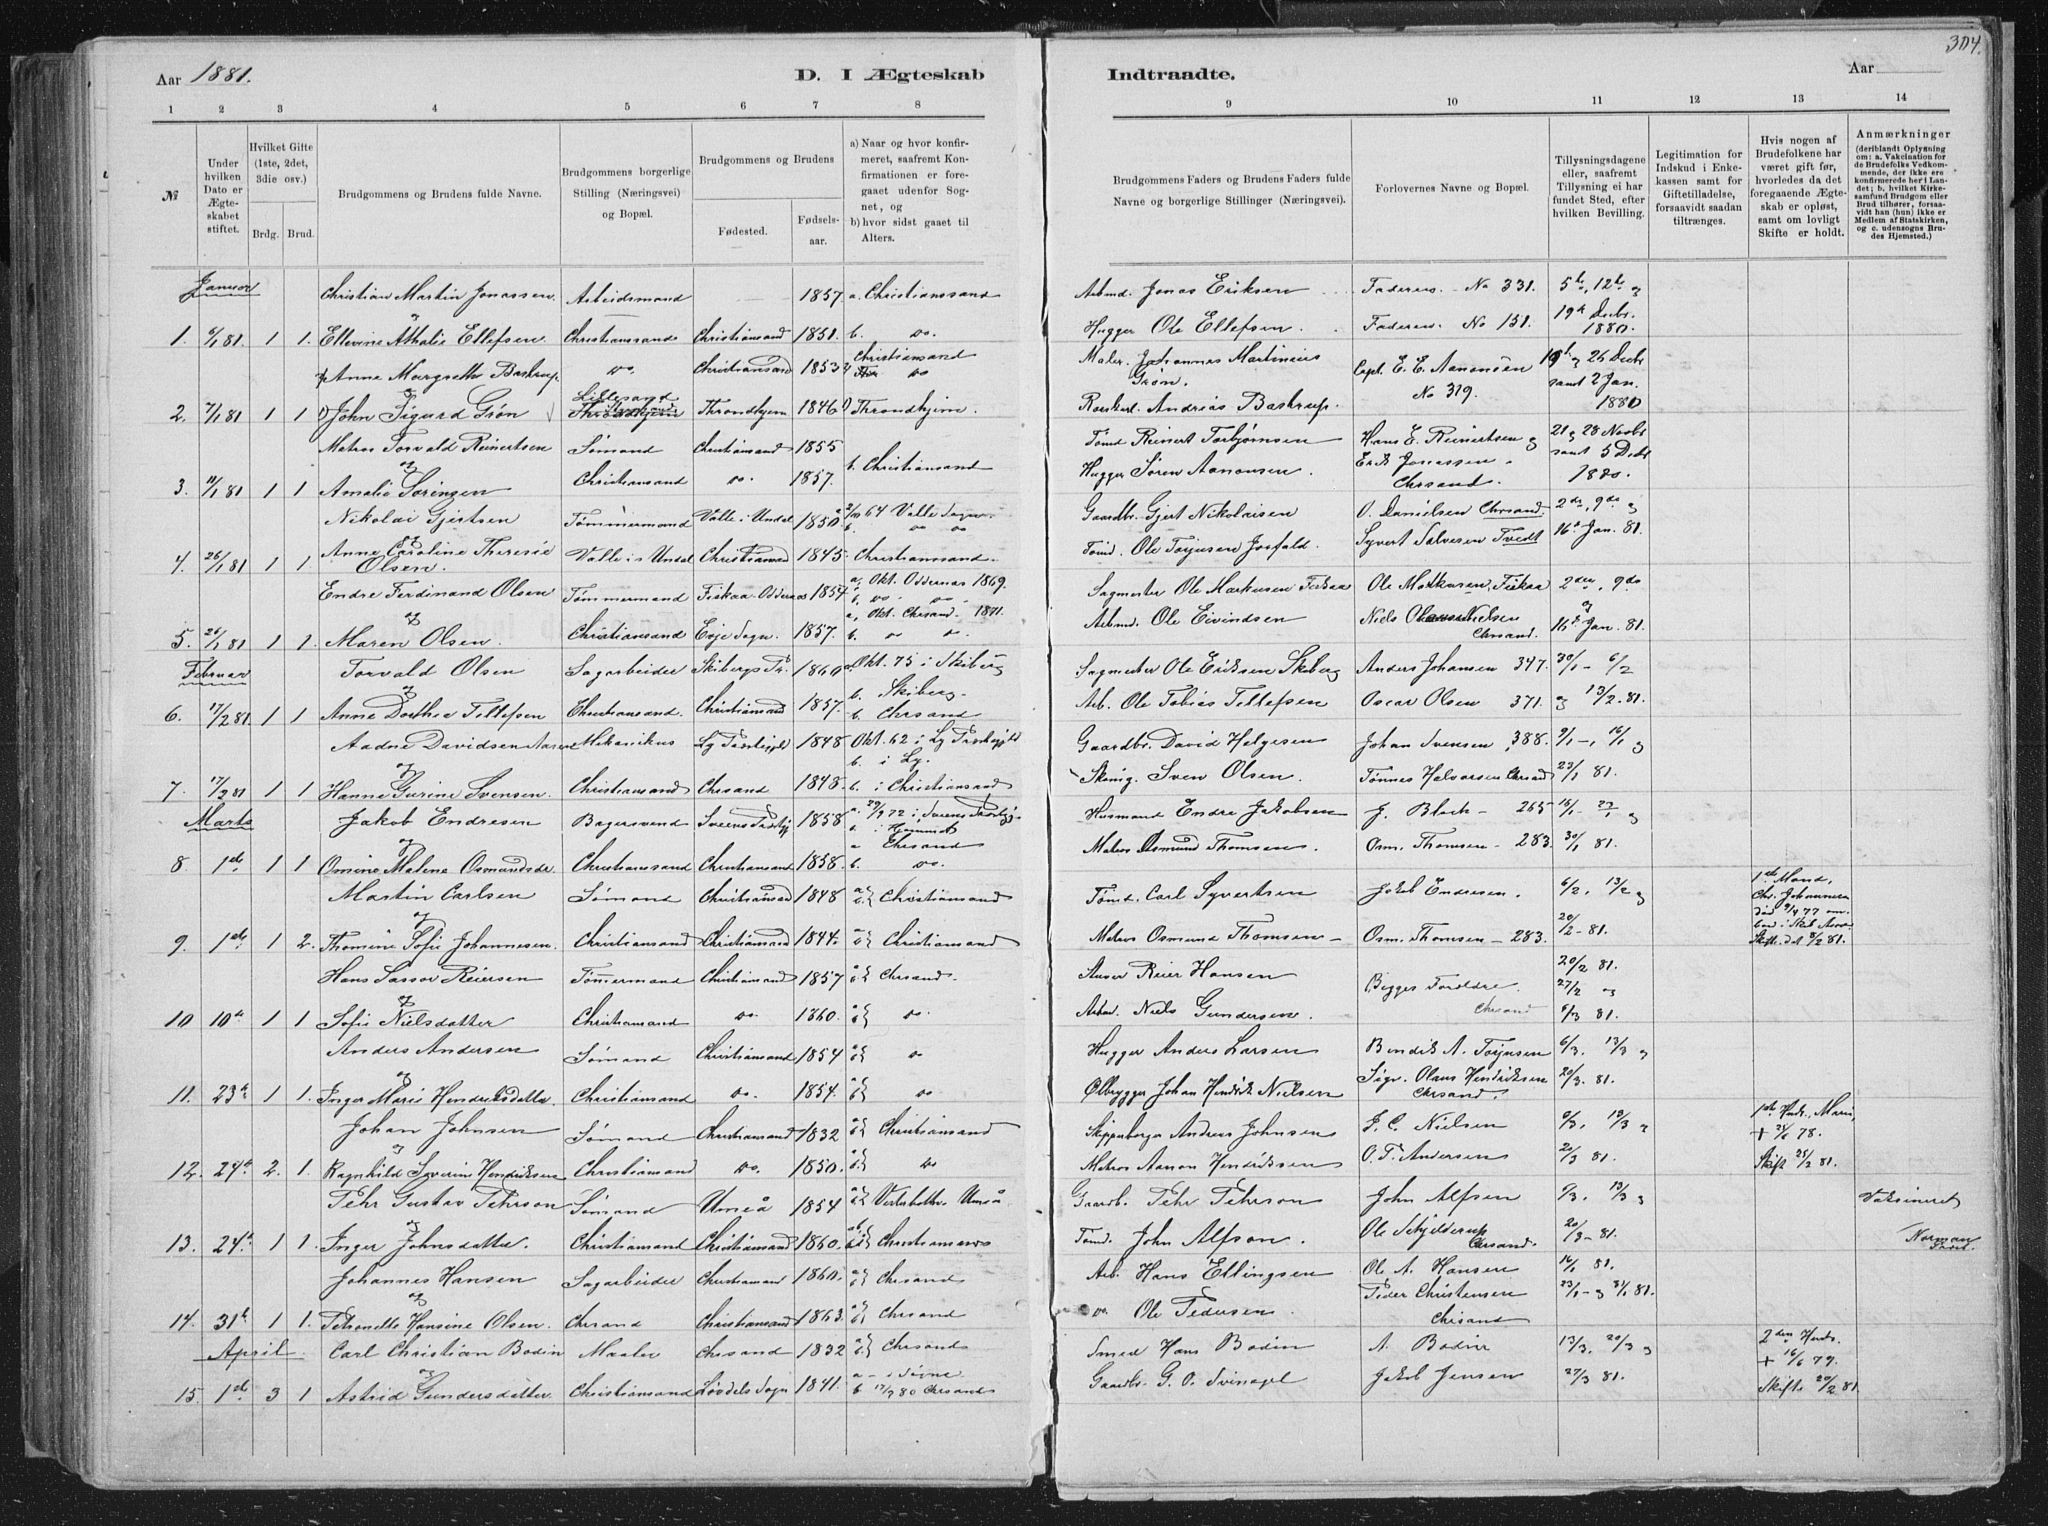 304.
Aar 1881.
D. I Ægteskab
Indtraadte.
Aar
1 2 3 4 5 6 7 8
9 10 11 12 13 14
№
Under hvilken Dato er Ægteskabet stiftet.
Hvilket Gifte (1ste, 2det, 3die osv.)
Brdg. Brud.
Brudgommens og Brudens fulde Navne.
Brudgommens borgerlige Stilling (Næringsvei) og Bopæl.
Brudgommens og Brudens
Fødested.
Fødselsaar.
a) Naar og hvor konfirmeret, saafremt Konfirmationen er foregaaet udenfor Sognet, og
b) hvor sidst gaaet til Alters.
Brudgommens Faders og Brudens Faders fulde Navne og borgerlige Stillinger (Næringsvei).
Forlovernes Navne og Bopæl.
Tillysningsdagene eller, saafremt Tillysning ei har fundet Sted, efter hvilken Bevilling.
Legitimation for Indskud i Enkekassen samt for Giftetilladelse, forsaavidt saadan tiltrænges.
Hvis nogen af Brudefolkene har været gift før, hvorledes da det foregaaende Ægteskab er opløst, samt om lovligt Skifte er holdt.
Anmærkninger
(deriblandt Oplysning om: a. Vakcination for de Brudefolks Vedkommende, der ikke ere konfirmerede her i Landet; b. hvilket Kirkesamfund Brudgom eller Brud tilhører, forsaavidt han (hun) ikke er Medlem af Statskirken, og c. udensogns Brudes Hjemsted.)
Januar
Christian Martin Jonassen Arbeidsmand 1857. a. Christianssand Arbmd. Jonas Eriksen Faderen No 331. 5te, 12te og
1. 6/1 81 1 1. og Ellevine Athalie Ellefsen Christianssand Christianssand 1851. b. do. Hugger Ole Ellefsen. Faderen. No 151. 19de Decbr. 1880.
2) Anne Margrethe Bastrup do. Christianssand 1853 Christianssand do Maler Johannes Martinius Grøn. Capt. E. E. Aanonsen No 319. 19de og 26 Decbr samt 2 Jan. 1880
2. 7/1 81 1 1 og 1) John Sigurd Grøn Lillesand Throndhjem 1846 Throndhjem. Andreas Bastrup.
Matros Torvald Reinertsen Sømand Christianssand 1855 Tømd Reinert Torbjørnsen Hans E. Reinertsen og 21 og 28 Novbr samt 5 Decbr
3. 11/1 81 1 1 og Amalie Sørensen Christianssand do. 1857. b. Christianssand Hugger Søren Aanonsen. Erik Jonassen. Chrsand. 1880.
Nikolai Gjertsen Tømmermand Valle i Undal 1850 64 Valle Sogn. b. do do Gaardbr. Gjert Nikolaisen O. Danielsen Chrsand. 2den, 9de og
4. 26/1 81 1 1 og Anne Caroline Theresie Olsen. Valle i s. Undal Christianssand 1845. Christianssand. Tømd. Ole Torjusen Josfald. Syvert Salvesen Tvedt 16de Jan. 81.
Endre Ferdinand Olsen Tømmermand Fiskaa Oddernæs 1854 a. Okt. Oddernæs 1869. b. do do Sagmester Ole Markusen Fiskaa Ole Markusen, Fiskaa 2den, 9de og
5. 26/1 81 1 1. og Maren Olsen. Christianssand Evje Sogn. 1857. a. Okt. Chrsand 1871. b. do do. Arbmd. Ole Eivindsen Niels Nielsen Chrsand. 16de Jan. 81.
Februar
Torvald Olsen Sagarbeider 1860 a. Okt. 75 i Skiberg b. Skiberg. Sagmester Ole Eriksen Skiberg Anders Johansen 347. 30/1 - 6/2
6. 17/2 81 1 1 og Anne Dorthea Tellefsen Christianssand. Christianssand 1857. b. Chrsand Arb. Ole Tobias Tellefsen Oscar Olsen 371. og 13/2 81.
Aadne Davidsen Mekanikus Ly Præstegjeld 1848. Okt. 62 i Ly Præstegjeld b. i Ly. Gaardbr. David Helgesen Johan Svensen, 388. 9/1 -, 16/1 og
7. 17/2 81 1 1 og Hanne Gurine Svensen. Christianssand Chrsand 1848. b. i Christianssand Sven Olsen. Tønnes Halvorsen Chrsand 23/1 81.
Marts
Jakob Endresen Bagersvend 1858 a. 29/9 72 i b. i Hjemmet Husmand Endre Jakobsen J. Block - 265 16/1 23/1 og
8 1ste 1 1 og Osmine Malene Osmundsdtr Christianssand Christianssand 1858. a Chrsand b. do. Matros Osmund Thomsen. Osm. Thomsen - 283. 30/1 81.
Martin Carlsen Sømand Christianssand 1848 a) b) Christianssand Tømd. Carl Syvertsen Jakob Endresen. 6/2, 13/2 og
9. 1ste 1 2. og Thomine Sofie Johannesen. Christianssand Christianssand 1844. a) b) Christianssand Matros Osmund Thomsen Osm. Thomsen - 283. 20/2 - 81. 1ste Mand, Chr. Johannesen død 9/4 77 Skifte dat 8/2 81.
Hans Lassov Reiersen Tømmermand Christianssand 1857 a) b) Chrsand. Reier Hansen Begges Forældre. 20/2 81. 27/2 og
10 10de 1 1 og Sofie Nielsdatter Christianssand do. 1860. a) b) do. Arbmd. Niels Gundersen. Chrsand 6/3 81.
Anders Andersen Sømand Christianssand 1854 a) b) do Hugger Anders Larsen Bendik A. Torjusen 6/3. 13/3 og
11. 23de 1 1. og Inger Marie Hendriksdatter. Christianssand do. 1854. a) b) do Ølbrygger Johan Hendrik Nielsen Sigv. Olaus Hendriksen Chrsand. 20/3. 81.
Johan Johnsen Sømand Christianssand 1832 a) b) Christianssand Andreas Johnsen J. C. Nielsen 6/3, 13/3 og 1ste Hustr., Maren, + 24/6 78. Skifte 25/2 81.
12. 24de 2. 1. og Ragnhild Severine Hendriksen Christianssand do. 1850. a) b) do Matros Aanon Hendriksen O. T. Andersen 20/3 81.
Pehr Gustav Pehrson Sømand Umeå 1854 a) b) Umeå Gaardb. Pehr Pehrson John Alfsen 6/3, 13/3 og Vaksineret
13. 24de 1 1. og Inger Johnsdatter. Christianssand Christianssand 1860. a) b) Christianssand Tømd. John Alfson. Ole Schjelderup Chrsand. 20/3 - 81. Norman
Johannes Hansen Sagarbeider Christianssand 1860. a) b) Chrsand Arb. Hans Ellingsen Ole A. Hansen 16/1 81.
14. 31te 1 1. og Petronelle Hansine Olsen. Chrsand Christianssand 1863. a) b) Chrsand do. Ole Pedersen. Peder Christensen Chrsand 23/1 - og 31/1 81.
April.
Carl Christian Bodin Maaler Chrsand 1832 a) b) Chrsand Smed Hans Bodin A. Bodin 13/3, 20/3 og 2den Hustr. + 16/6 79. Skifte 20/2 81.
15. 1ste 3 1 og Astrid Gundersdatter Christianssand 1841. a - i Søgne b 80 Chrsand Gaardbr. G. O. Jakob Jensen 27/3 81.